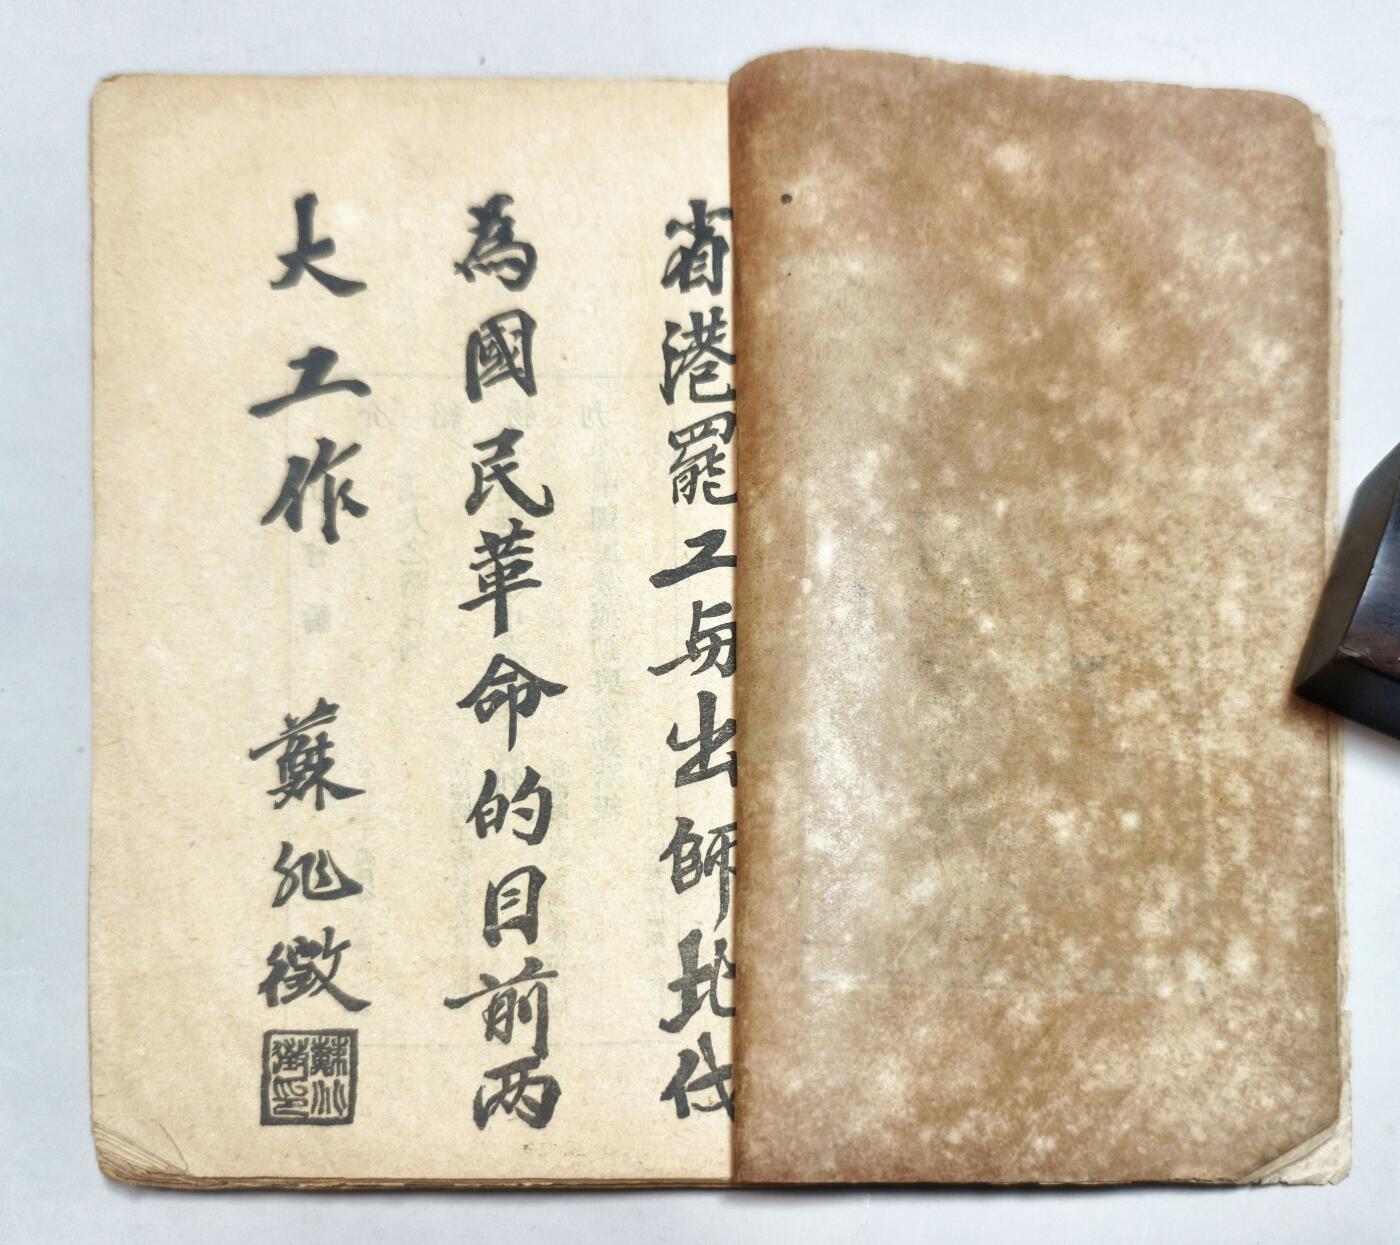 省港罷工与出師北伐
為國民革命的目前兩
大工作 蘇兆徵
蘇兆徵印